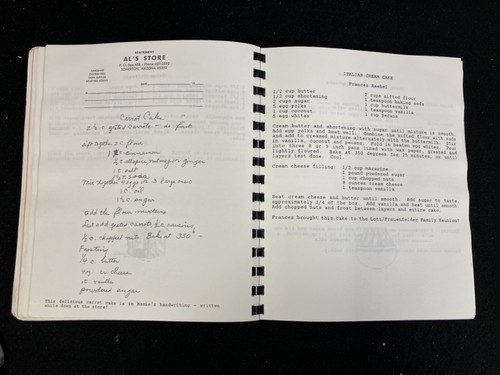 STATEMENT
AL'S STORE
Carrot Cake
2 ½ c. grated carrots - do first
sift together 2 c. flour
1 t. cinnamon
½ t. allspice, nutmeg or ginger
1 t. salt
1 ½ t. soda
Mix together 4 eggs or 3 large ones
1 c. oil
1 ½ c. sugar
add the flour mixture
Last add grated carrots,
½ c. chopped nuts Bake at 350° -
Frosting
¼ c. butter
4 oz. cr. cheese
1 t. vanilla
powdered sugar
This delicious carrot cake is in Mamie's handwriting - written
while down at the store!
ITALIAN CREAM CAKE
Frances Haskel
1/2 cup butter
1/2 cup shortening
2 cups sugar
5 egg yolks
1 cup coconut
5 egg whites
2 cups sifted flour
1 teaspoon baking soda
1 cup buttermilk
1 teaspoon vanilla
1 cup pecans
Cream butter and shortening with sugar until mixture is smooth.
Add egg yolks and beat well. Combine the sifted flour with soda
and add to creamed mixture alternately with buttermilk. Stir
in vanilla, coconut and pecans. Fold in beaten egg whites. Pour
into three 8 or 9 inch pans lined with wax paper, greased and
lightly floured. Bake at 350 degrees for 25 minutes, or until
layers test done. Cool.
Cream cheese filling:
1/2 cup margarine
1 pound powdered sugar
1 cup chopped nuts
8 ounces cream cheese
1 teaspoon vanilla
Beat cream cheese and butter until smooth. Add sugar to taste,
approximately 3/4 of the box. Add vanilla and beat until smooth.
Add chopped nuts and frost between layers and entire cake.
Frances brought this cake to the Lott/Frauenfelder Family Reunion!